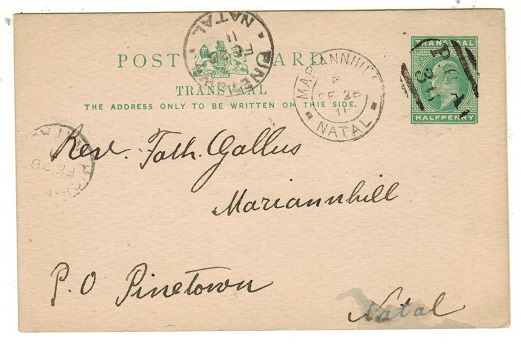 POST CARD
TRANSVAAL
THE ADDRESS ONLY TO BE WRITTEN ON THIS SIDE.
PINETOWN
NATAL
11
MARIANNHILL
FE 26
11
NATAL
TRANSVAAL
HALFPENNY
Rev. Fath. Gallus
Mariannhill
P.O Pinetown
Natal